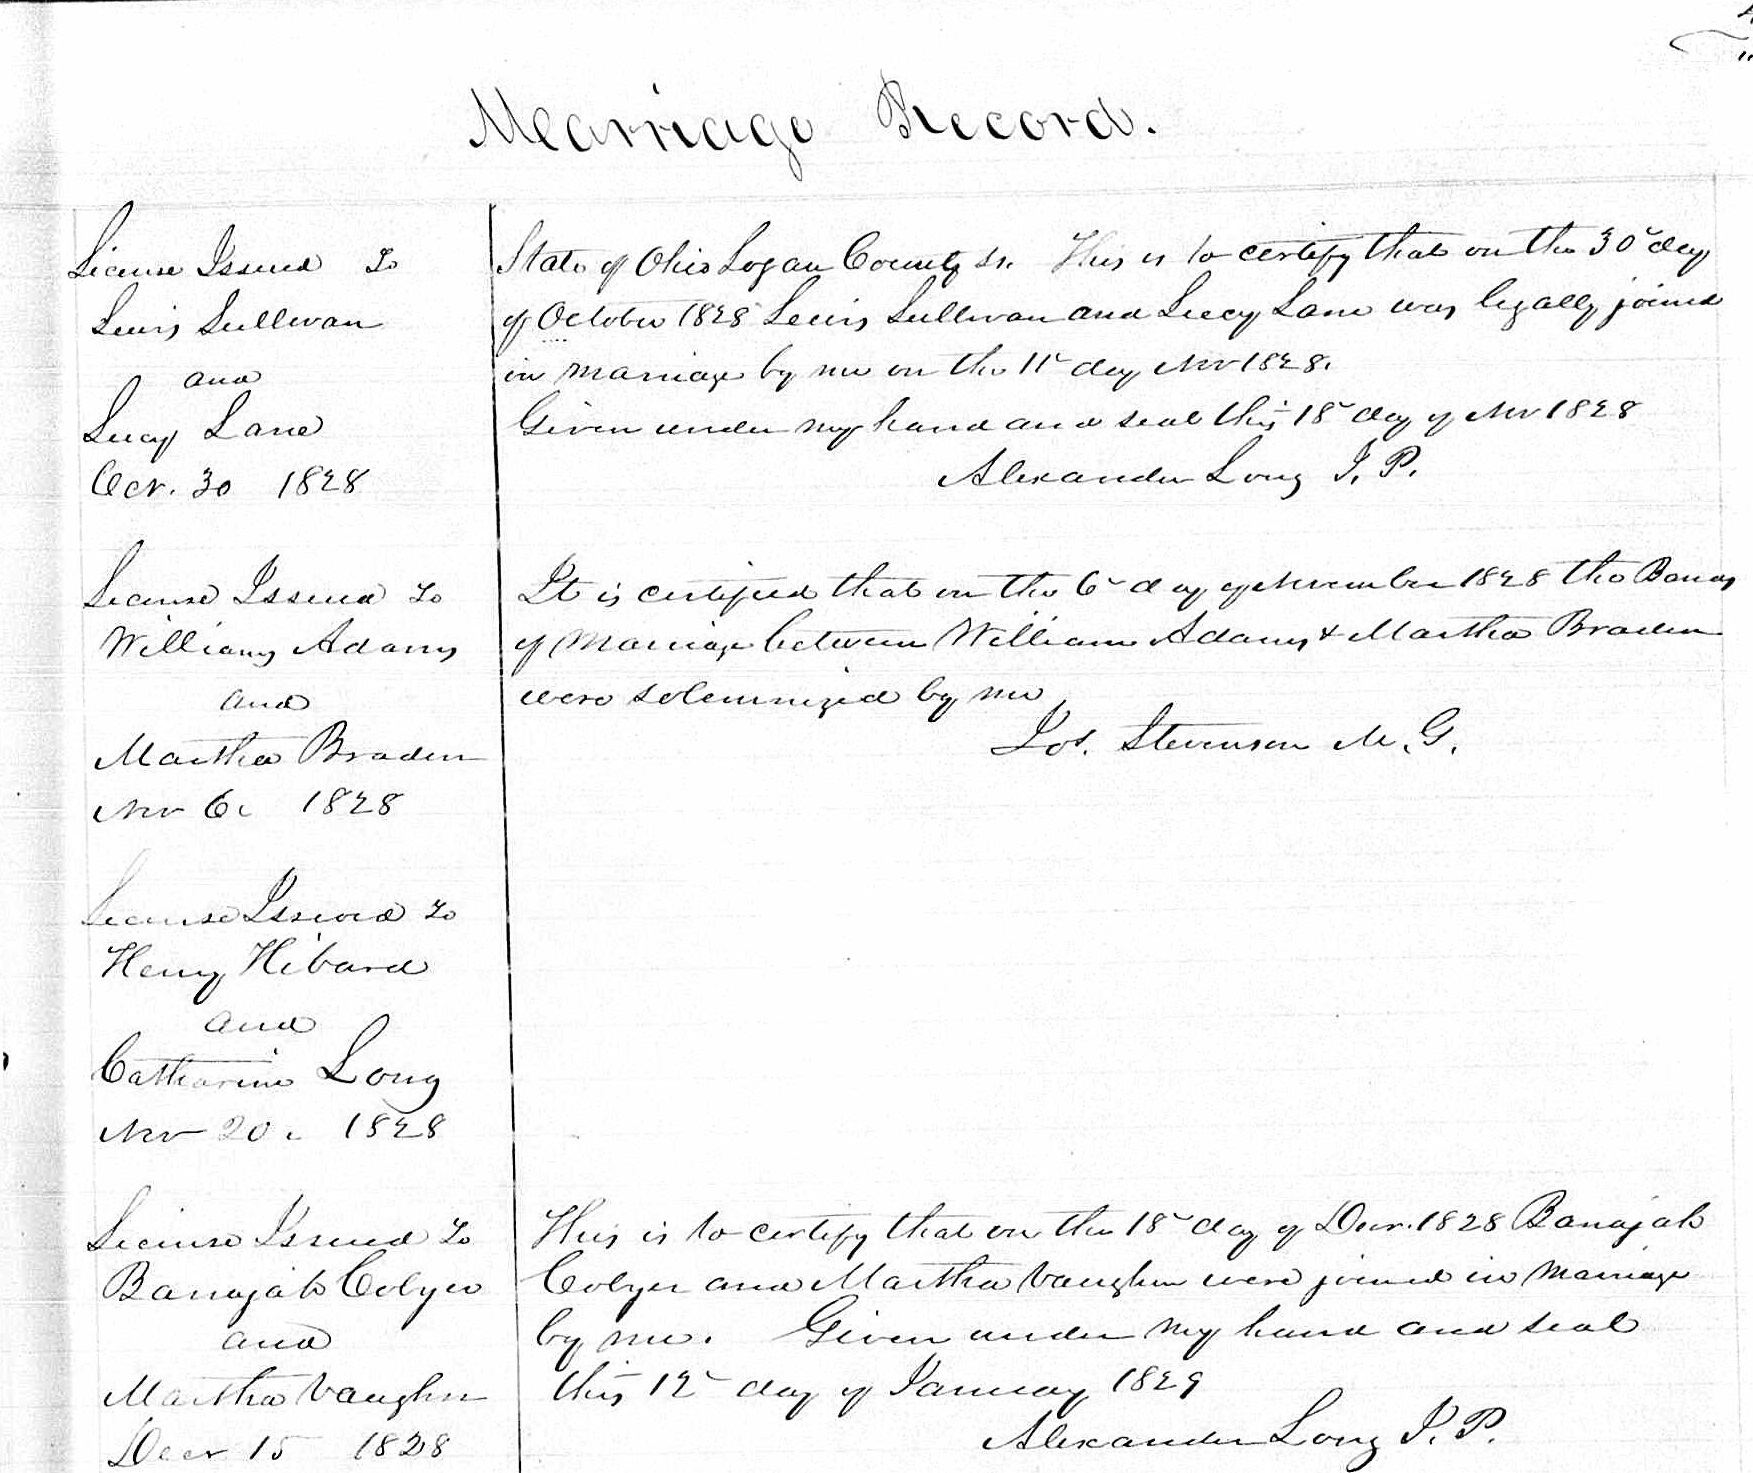 Marriage Record.
License Issued To
Lewis Sullivan
and
Lucy Lane
Oct. 30 1828
State of Ohio Logan County ss. This is to certify that on the 30 day
of October 1828 Lewis Sullivan and Lucy Lane was legally joined
in marriage by me on the 11 day Nov 1828.
Given under my hand and seal this 18 day of Nov 1828
Alexander Long J. P.
License Issued To
William Adams
and
Martha Braden
Nov 6. 1828
It is certified that on the 6 day of November 1828 the Banns
of Marriage between William Adams & Martha Braden
were solemnized by me
Jos. Stevenson M. G.
License Issued To
Henry Hibard
and
Catharine Long
Nov 20. 1828
License Issued To
Banajah Colyer
and
Martha Vaughn
Decr 15 1828
This is to certify that on the 18 day of Decr. 1828 Banajah
Colyer and Martha Vaughn were joined in Marriage
by me. Given under my hand and seal
this 12 day of January 1829
Alexander Long J. P.